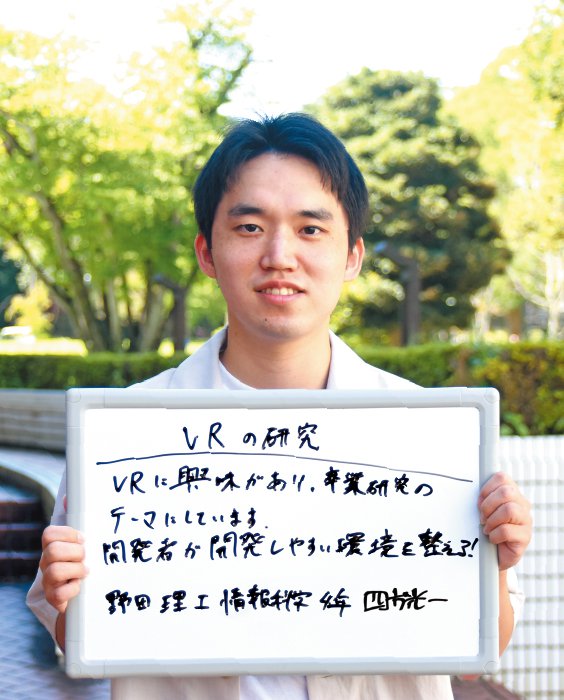 VRの研究
VRに興味があり、卒業研究の
テーマにしています.
開発者が開発しやすい環境を整える!
野田 理工 情報科学 4年 四方光一